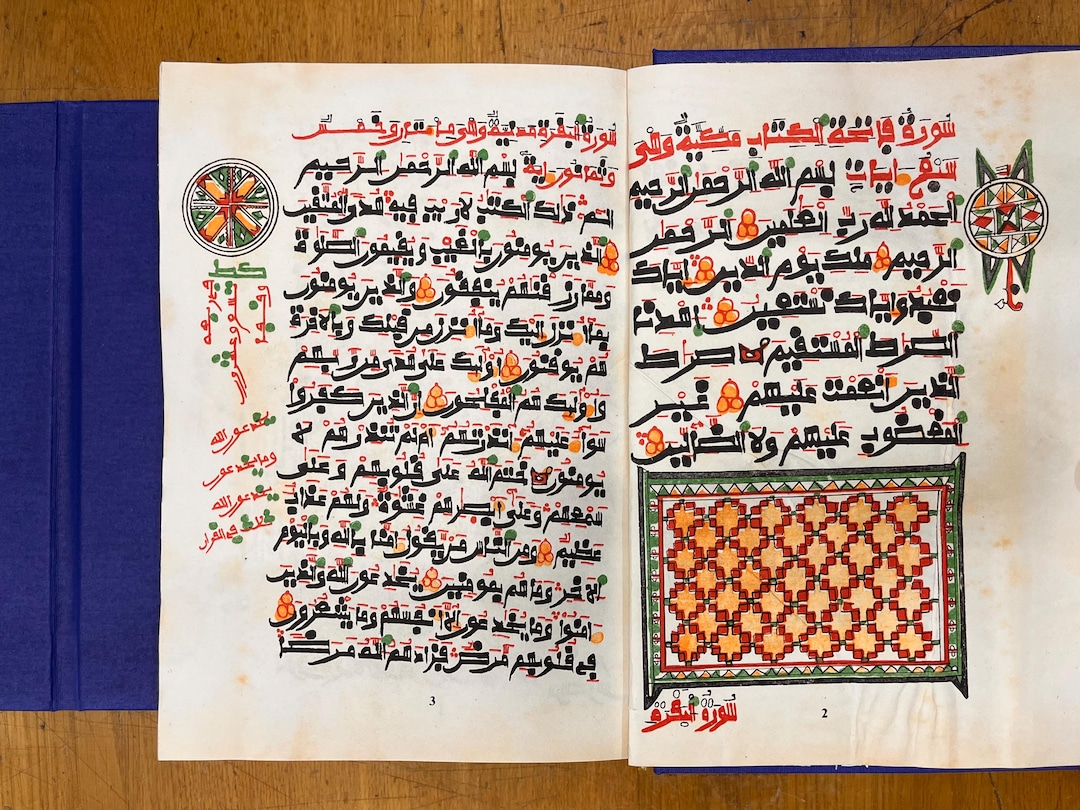 سورة فاتحة الكتاب مكية وهي
سبع ايات بسم الله الرحمن الرحيم
الحمد لله رب العلمين الرحمن
الرحيم ملك يوم الدين اياك
نعبد واياك نستعين اهدنا
الصرط المستقيم صراط
الذين انعمت عليهم غير
المغضوب عليهم ولا الضالين
سورة البقرة
2
سورة البقرة مدنية وهي مائتان وخمس
وثمانون اية بسم الله الرحمن الرحيم
الم ذلك الكتب لا ريب فيه هدى للمتقين
الذين يومنون بالغيب ويقيمون الصلوة
ومما رزقنهم ينفقون والذين يومنون
بما انزل اليك وما انزل من قبلك وبالاخرة
هم يوقنون اولئك على هدى من ربهم
واولئك هم المفلحون ان الذين كفروا
سواء عليهم انذرتهم ام لم تنذرهم لا
يومنون ختم الله على قلوبهم وعلى
سمعهم وعلى ابصرهم غشوة ولهم عذاب
عظيم ومن الناس من يقول امنا بالله وباليوم
الاخر وما هم بمومنين يخدعون الله والذين
امنوا وما يخدعون الا انفسهم وما يشعرون
في قلوبهم مرض فزادهم الله مرضا
يخدعون الله
وما يخدعون
يخدعون الله
3